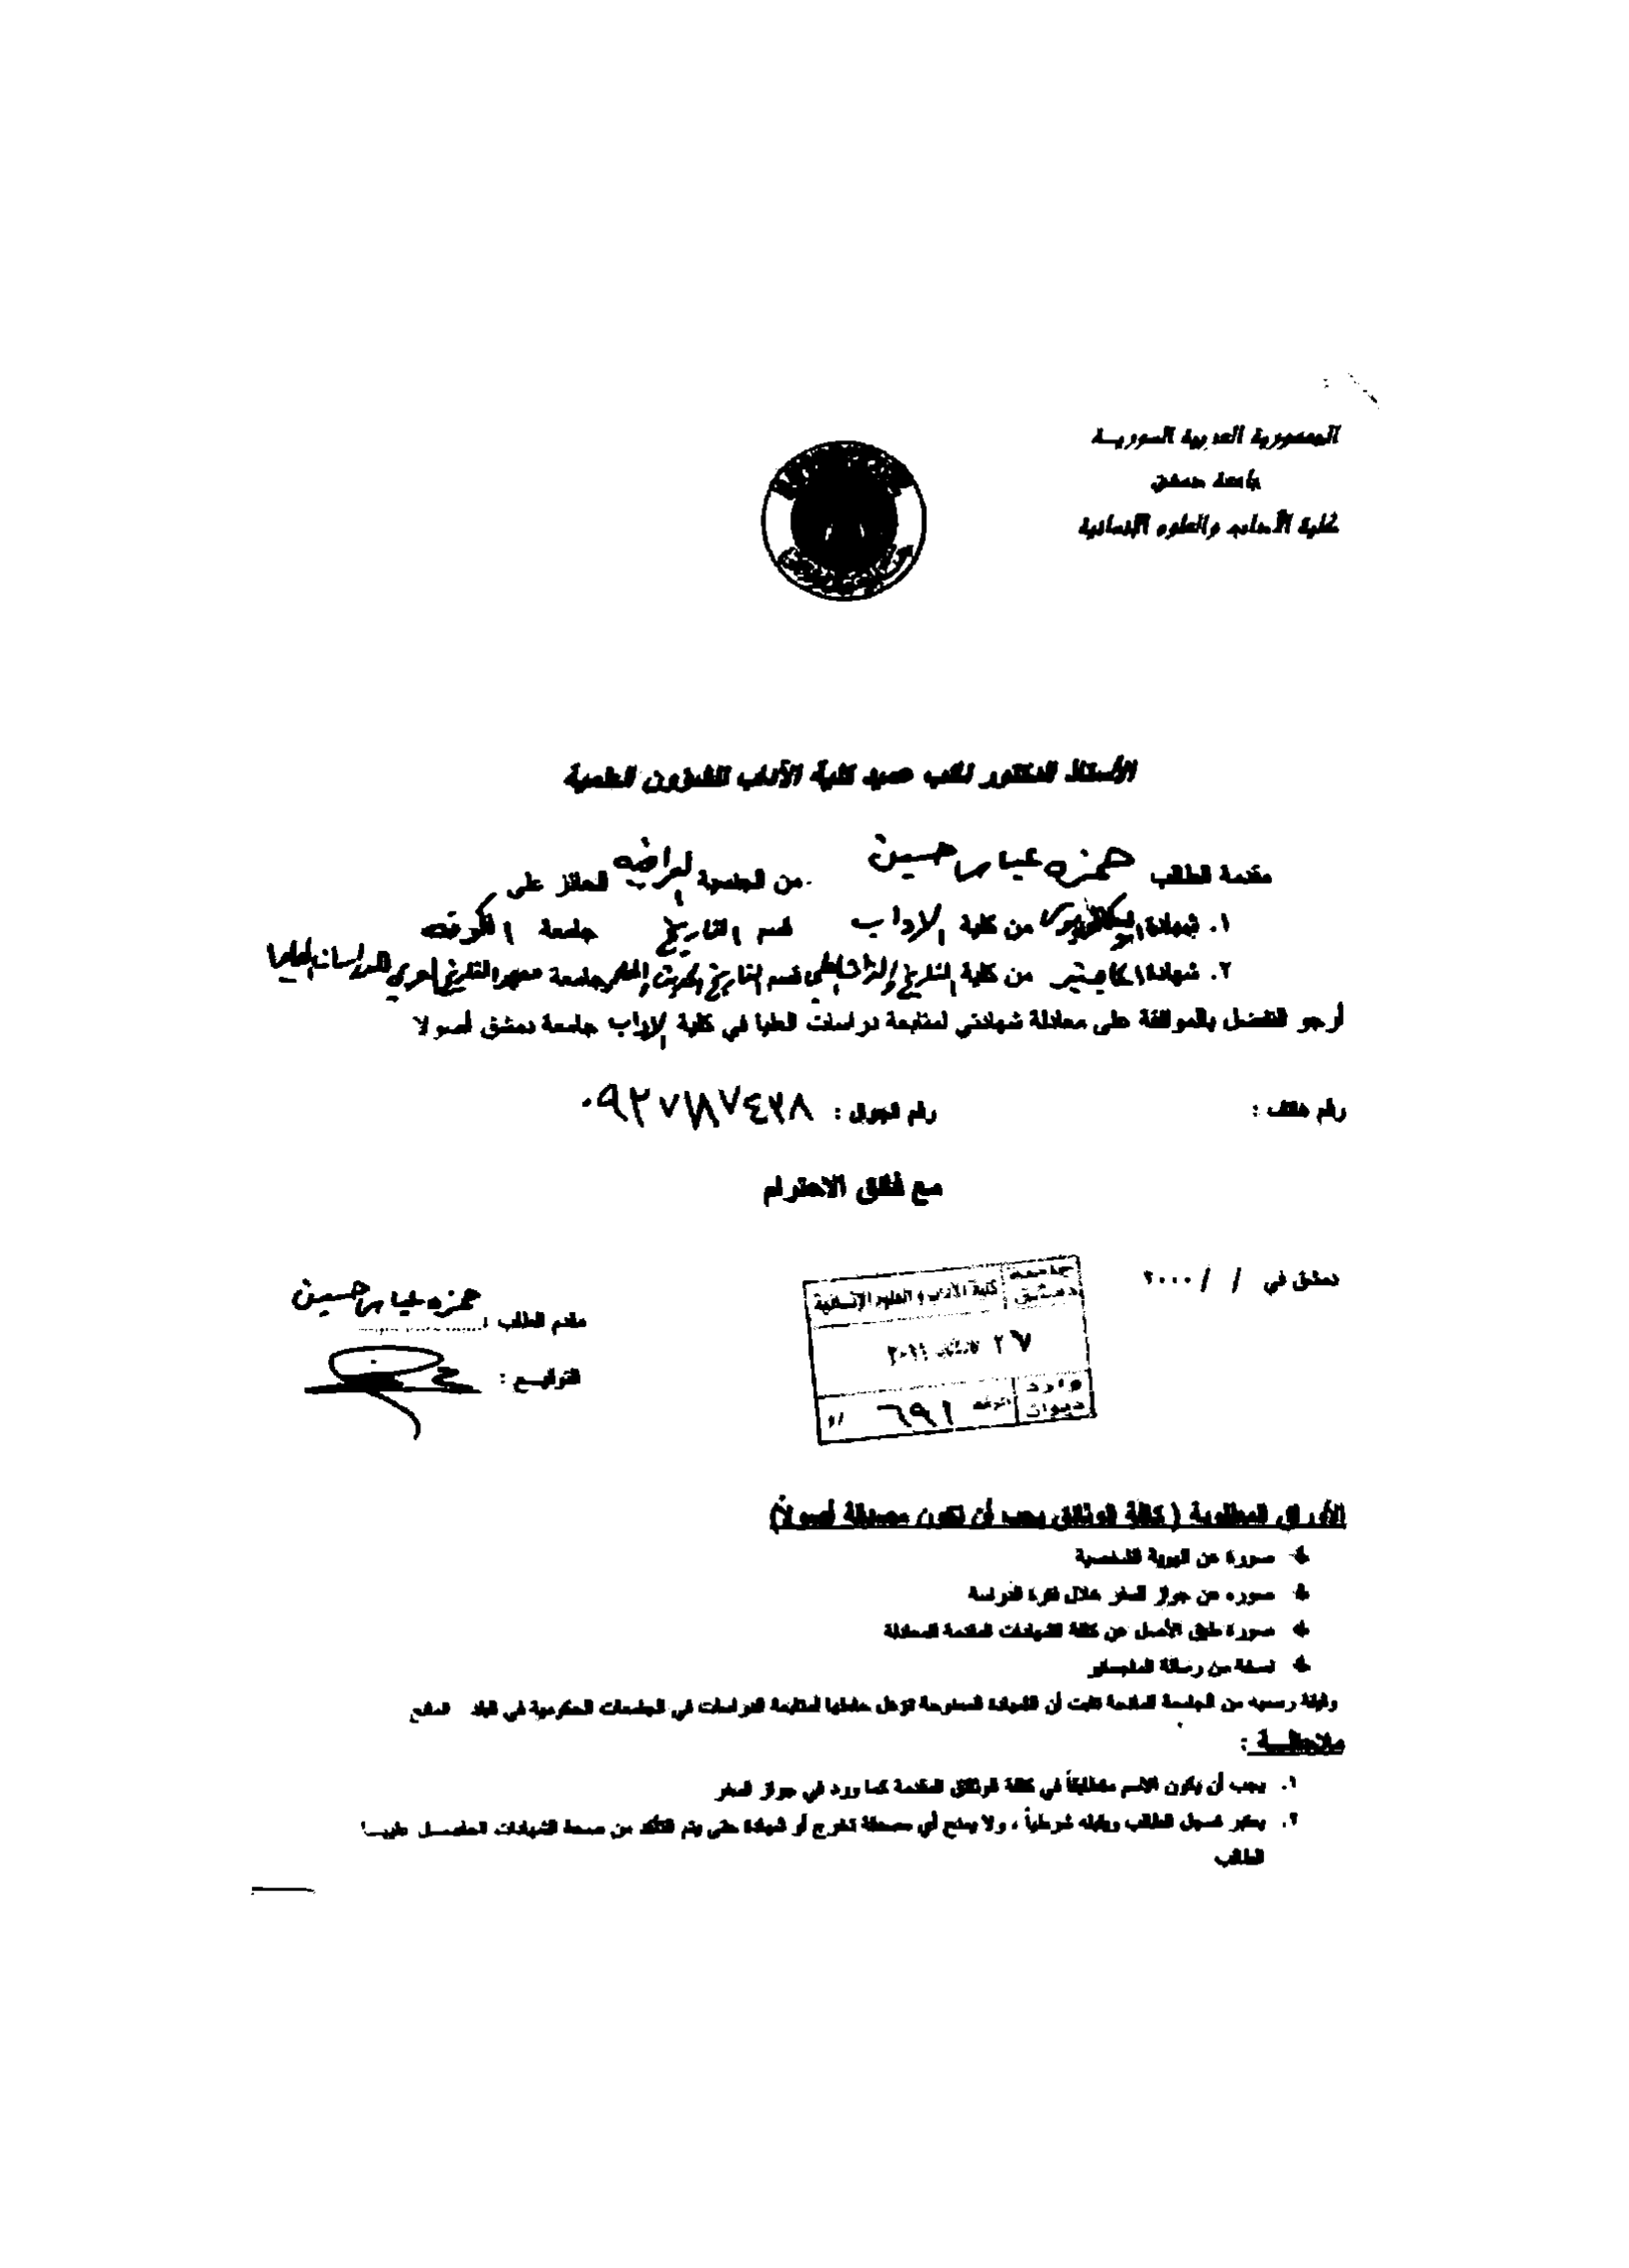 الجمهورية العربية السورية
جامعة دمشق
كلية الآداب والعلوم الإنسانية
الأستاذ الدكتور نائب عميد كلية الآداب للشؤون العلمية
مقدمة الطالب حمزه عباس حسين من الجنسية العراقيه الحائز على
١. شهادة البكالوريوس من كلية الاداب قسم التاريخ جامعة الكوفه
٢. شهادة من كلية التاريخ قسم التاريخ الحديث والمعاصر جامعة معهد التاريخ العربي للدراسات العليا
أرجو التفضل بالموافقة على معادلة شهادتي لمتابعة دراسات العليا في كلية الاداب جامعة دمشق أصولا
رقم هاتف :
رقم الجوال : ٠٩٣٧٧٨٧٤٣٨
مع فائق الاحترام
دمشق في / / ٢٠٠٠
جامعة دمشق كلية الآداب و العلوم الإنسانية
٢٧ ٢٠١١
وارد ديوان الرقم ٦٩١ /و
مقدم الطلب : حمزه عباس حسين
التوقيـــع :
الأوراق المطلوبة ( كافة الوثائق يجب أن تكون مصدقة أصولاً)
صورة عن الهوية الشخصية
صوره عن جواز السفر خلال فترة الدراسة
صورة طبق الأصل عن كافة الشهادات المقدمة للمعادلة
نسخة من رسالة الماجستير
وثيقة رسميه من الجامعة المانحة تثبت أن الشهادة الممنوحة تؤهل حاملها لمتابعة الدراسات في الجامعات الحكومية في البلد المانح
ملاحظـــة :
١. يجب أن يكون الاسم متطابقاً في كافة الوثائق المقدمة كما ورد في جواز السفر
٢. يعتبر تسجيل الطالب وقبوله شرطياً ، ولا يمنح أي مصدقة تخرج أو شهادة حتى يتم التأكد من صحة الشهادات الحاصـــل عليهـــا
الطالب